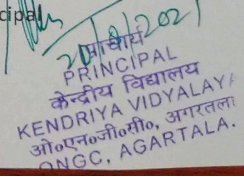 cipal
20/9/2021
प्राचार्य
PRINCIPAL
केन्द्रीय विद्यालय
KENDRIYA VIDYALAYA
ओ०एन०जी०सी०, अगरतला
ONGC, AGARTALA.